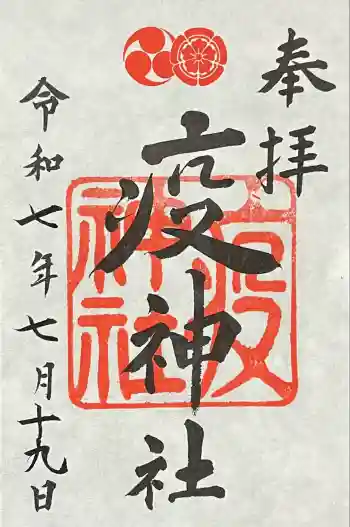 奉拝
疫神社
疫神社
令和七年七月十九日